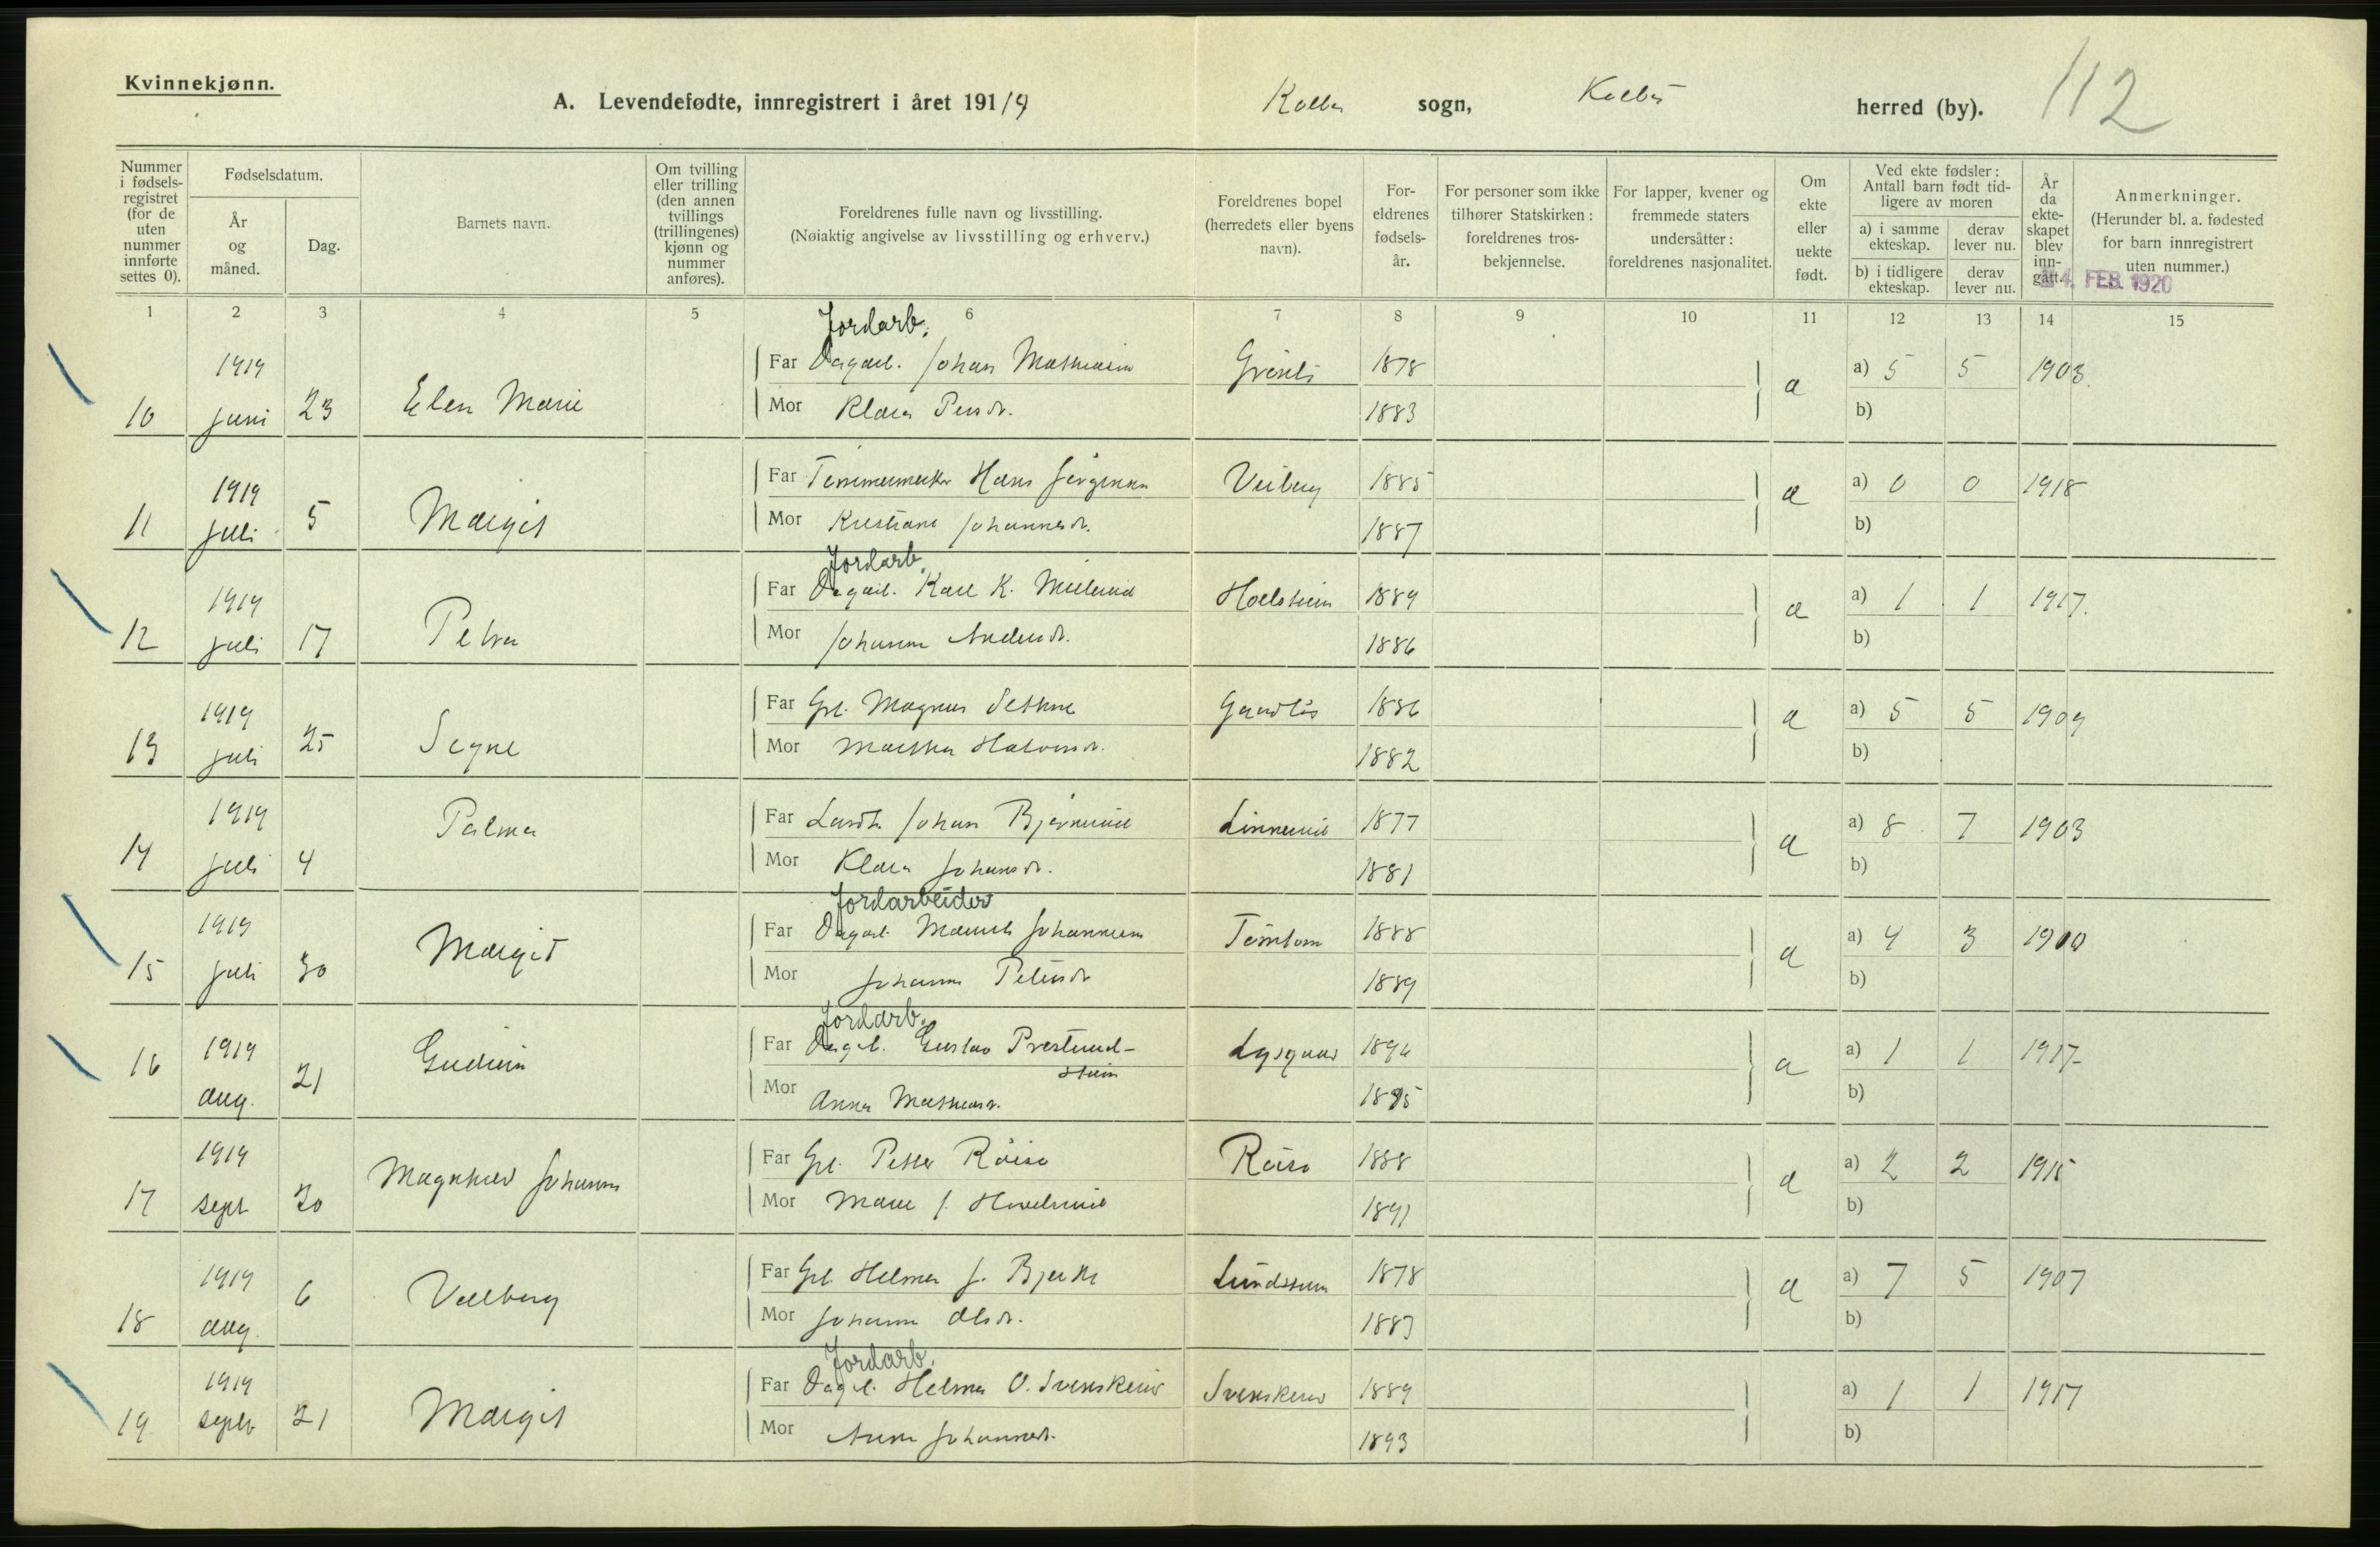 Kvinnekjønn.
A. Levendefødte, innregistrert i året 1919 Kolbu sogn, Kolbu herred (by). 112
Nummer i fødsels-registret (for de uten nummer innførte settes 0).
Fødselsdatum.
År og måned.
Dag.
Barnets navn.
Om tvilling eller trilling (den annen tvillings (trillingenes) kjønn og nummer anføres).
Foreldrenes fulle navn og livsstilling.
(Nøiaktig angivelse av livsstilling og erhverv.)
Foreldrenes bopel (herredets eller byens navn).
For-eldrenes fødsels-år.
For personer som ikke tilhører Statskirken: foreldrenes tros-bekjennelse.
For lapper, kvener og fremmede staters undersåtter: foreldrenes nasjonalitet.
Om ekte eller uekte født.
Ved ekte fødsler: Antall barn født tid-ligere av moren
a) i samme ekteskap. derav lever nu.
b) i tidligere ekteskap. derav lever nu.
År da ekte-skapet blev inn-gått.
Anmerkninger.
(Herunder bl. a. fødested for barn innregistrert uten nummer.)
4. FEB. 1920
1 2 3 4 5 6 7 8 9 10 11 12 13 14 15
Jordarb.
1919 Far Dagarb. Johan Mathiasen 1878 a) 5 5 1903
10 juni 23 Elen Marie Mor Klara Persdt. 1883 a b)
1919 Far Tømmermerker Hans Jørgensen Veiberg 1885 a) 0 0 1918
11 juli 5 Margit Mor Kristiane Johannesdt. 1887 a b)
Jordarb.
1919 Far Dagarb. Karl K. Holstein 1889 a) 1 1 1917
12 juli 17 Petra Mor Johanne Andersdt. 1886 a b)
1919 Far Grb. Magnus Sethne 1886 a) 5 5 1909
13 juli 25 Signe Mor Marthea Halvorsdt. 1882 a b)
1919 Far Johan Linnerud 1877 a) 8 7 1903
14 juli 4 Palma Mor Klara Johansdt. 1881 a b)
Jordarbeider
1919 Far Dagarb. Johannesen Tømtom 1888 a) 4 3 1910
15 juli 30 Margit Mor Johanne Petersdt. 1889 a b)
Jordarb.
1919 Far Dagarb. Gustav Prestrud- Lysgaard 1894 a) 1 1 1917
stuen
16 aug. 21 Gudrun Mor Anna Mathiasdt. 1895 a b)
1919 Far Grb. Petter Røise Røise 1888 a) 2 2 1915
17 sept 20 Magnhild Johanne Mor Marie J. 1891 a b)
1919 Far Grb. Helmer J. Bjerke Lundstuen 1878 a) 7 5 1907
18 aug. 6 Valborg Mor Johanne Olsdt. 1883 a b)
Jordarb.
1919 Far Dagarb. Helmer O. Svenskerud Svenskerud 1889 a) 1 1 1917
19 septb 21 Margit Mor Anna Johannesdt. 1893 b)